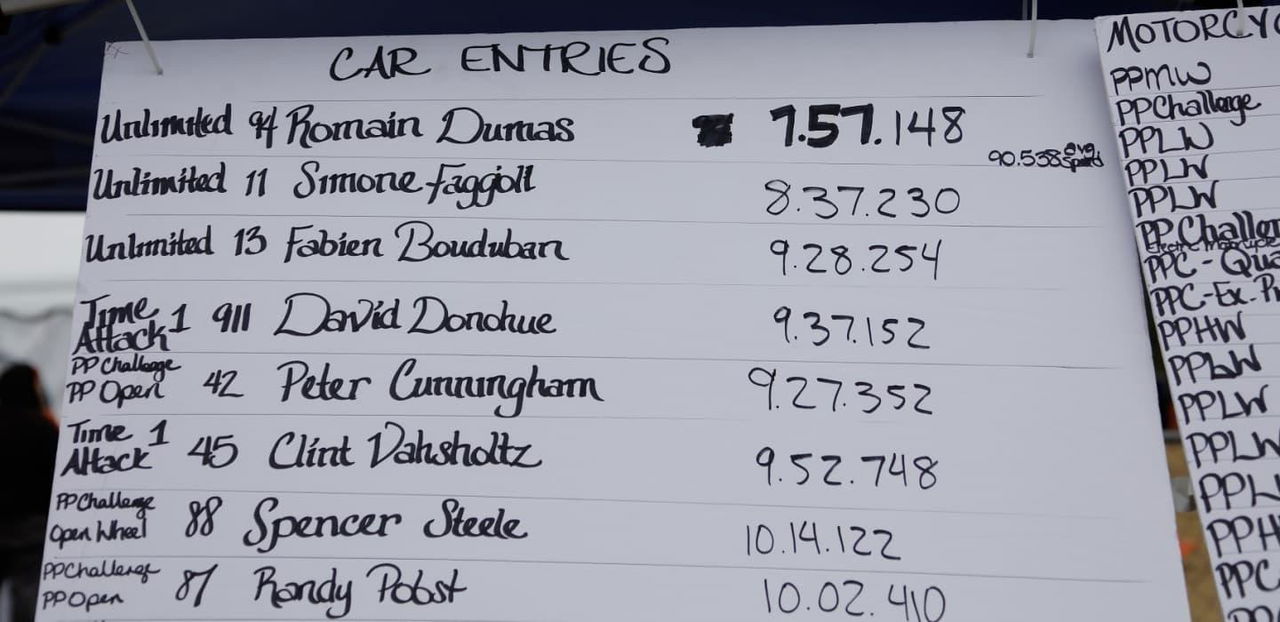 CAR ENTRIES
Unlimited 94 Romain Dumas 7.57.148
90.538 avg speed
Unlimited 11 Simone Faggioli 8.37.230
Unlimited 13 Fabien Bouduban 9.28.254
Time Attack 1 911 David Donohue 9.37.152
PP Challenge PP Open 42 Peter Cunningham 9.27.352
Time Attack 1 45 Clint Vahsholtz 9.52.748
PP Challenge Open Wheel 88 Spencer Steele 10.14.122
PP Challenge PP Open 87 Randy Pobst 10.02.410
MOTORCYC
PPMW
PPChallenge
PPLW
PPLW
PPLW
PP Challen
Electric Motorcycle
PPC - Qua
PPC-Ex. Pr
PPHW
PPLW
PPLW
PPLW
PPL
PPH
PPC